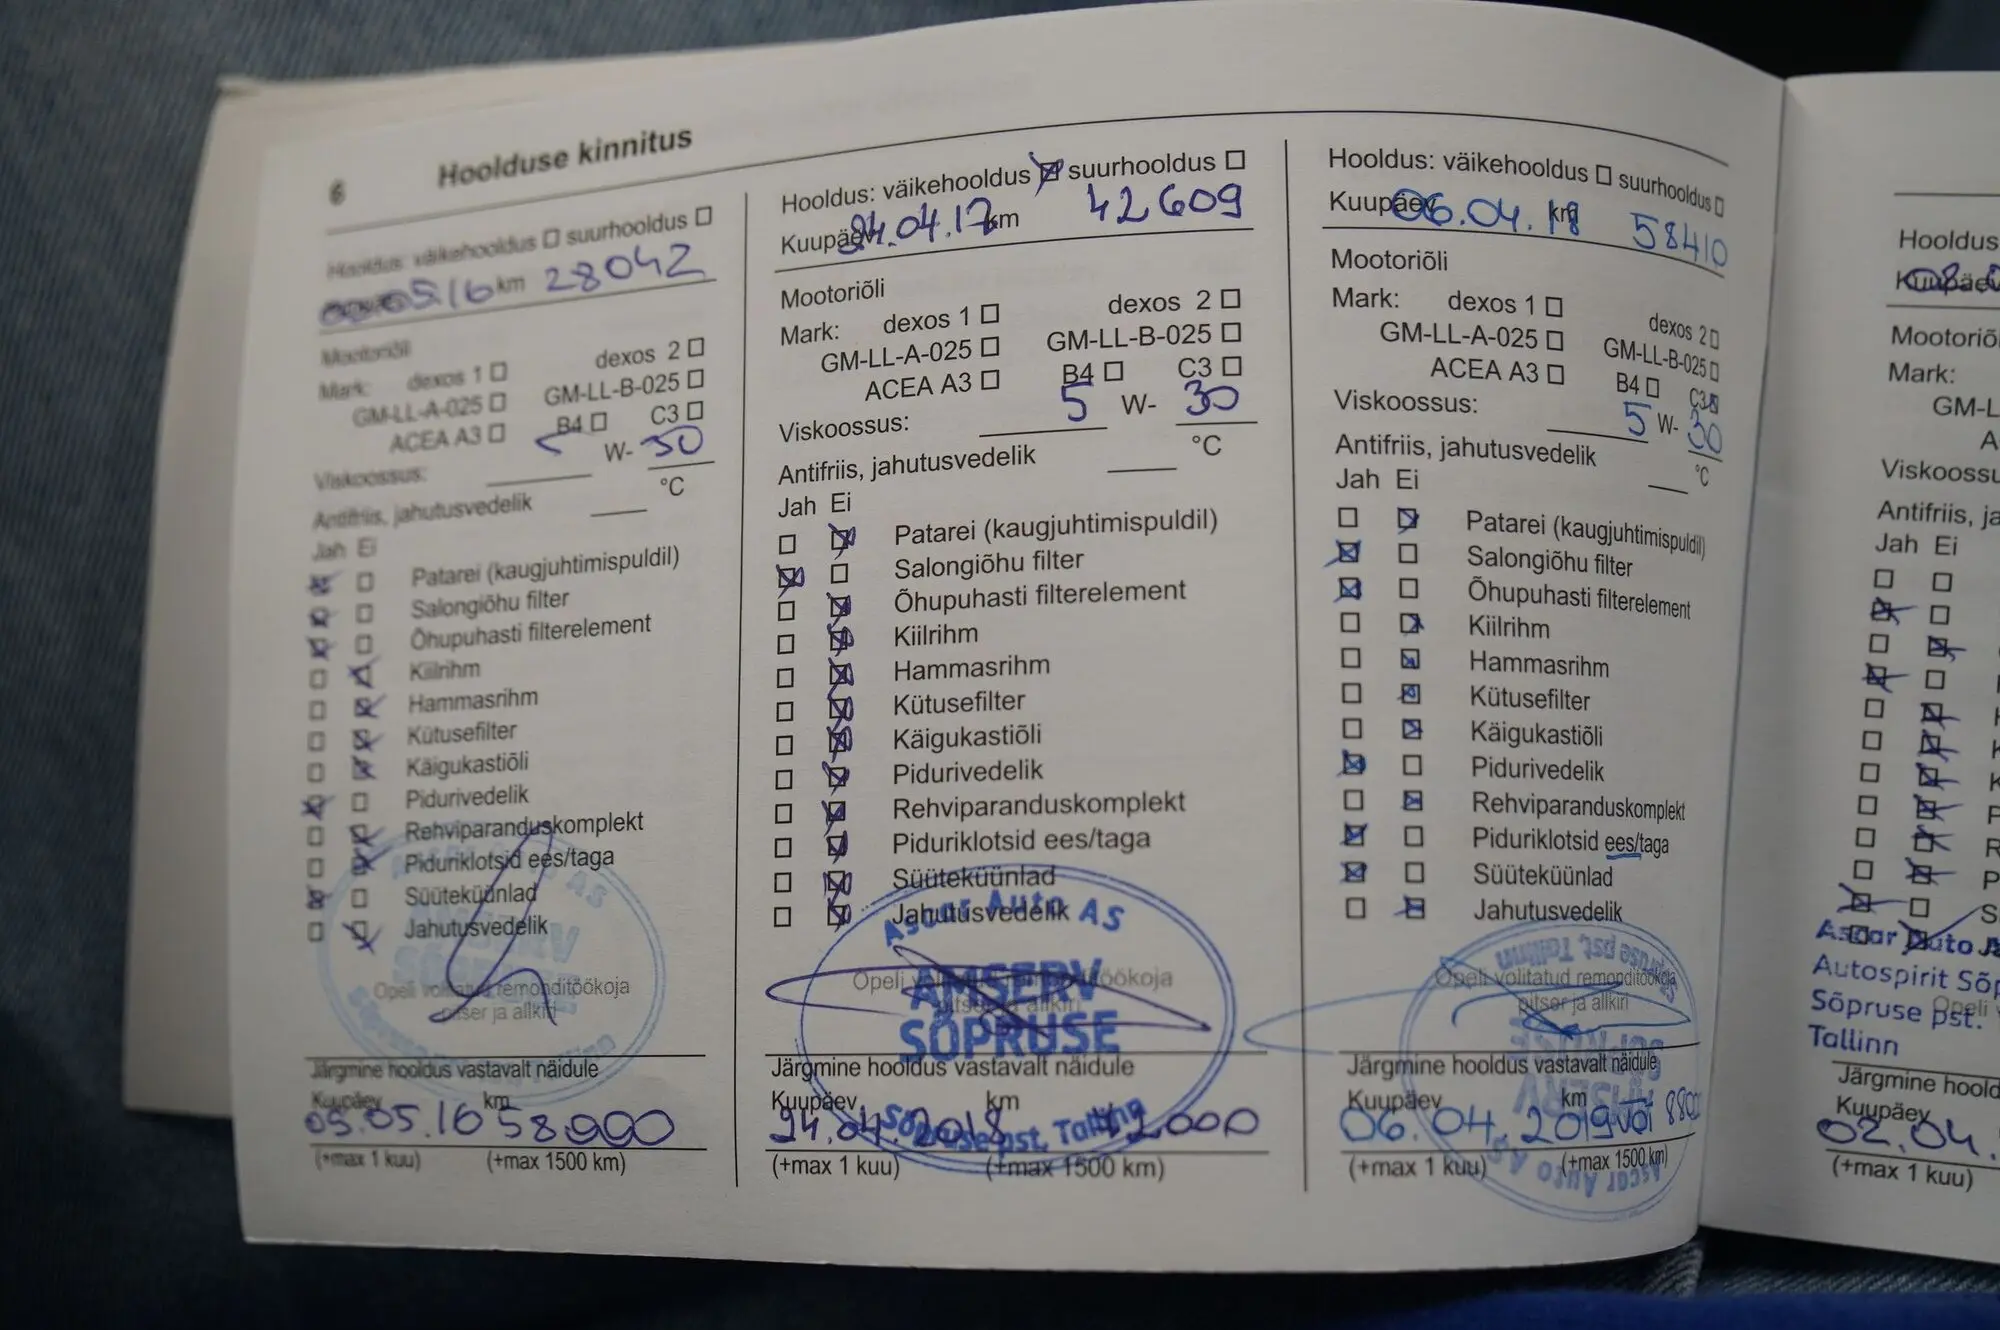 6 Hoolduse kinnitus
Hooldus: väikehooldus suurhooldus
05.16 km 28042
Mootoriõli
Mark: dexos 1 dexos 2
GM-LL-A-025 GM-LL-B-025
ACEA A3 B4 C3
Viskoossus: 5 W- 30
Antifriis, jahutusvedelik °C
Jah Ei
Patarei (kaugjuhtimispuldil)
Salongiõhu filter
Õhupuhasti filterelement
Kiilrihm
Hammasrihm
Kütusefilter
Käigukastiõli
Pidurivedelik
Rehviparanduskomplekt
Piduriklotsid ees/taga
Süüteküünlad
Jahutusvedelik
AMSERV
SÕPRUSE
Opeli volitatud remonditöökoja
pitser ja allkiri
Järgmine hooldus vastavalt näidule
Kuupäev km
05.05.16 58000
(+max 1 kuu) (+max 1500 km)
Hooldus: väikehooldus suurhooldus
Kuupäev 24.04.17 km 42609
Mootoriõli
Mark: dexos 1 dexos 2
GM-LL-A-025 GM-LL-B-025
ACEA A3 B4 C3
Viskoossus: 5 W- 30
Antifriis, jahutusvedelik °C
Jah Ei
Patarei (kaugjuhtimispuldil)
Salongiõhu filter
Õhupuhasti filterelement
Kiilrihm
Hammasrihm
Kütusefilter
Käigukastiõli
Pidurivedelik
Rehviparanduskomplekt
Piduriklotsid ees/taga
Süüteküünlad
Jahutusvedelik
Ascar Auto AS
Opeli volitatud remonditöökoja
AMSERV
pitser ja allkiri
SÕPRUSE
Järgmine hooldus vastavalt näidule
Kuupäev km
24.04.2018 42000
Sõpruse pst, Tallinn
(+max 1 kuu) (+max 1500 km)
Hooldus: väikehooldus suurhooldus
Kuupäev 06.04.18 km 58410
Mootoriõli
Mark: dexos 1 dexos 2
GM-LL-A-025 GM-LL-B-025
ACEA A3 B4 C3
Viskoossus: 5 W- 30
Antifriis, jahutusvedelik °C
Jah Ei
Patarei (kaugjuhtimispuldil)
Salongiõhu filter
Õhupuhasti filterelement
Kiilrihm
Hammasrihm
Kütusefilter
Käigukastiõli
Pidurivedelik
Rehviparanduskomplekt
Piduriklotsid ees/taga
Süüteküünlad
Jahutusvedelik
Sõpruse pst, Tallinn
Opeli volitatud remonditöökoja
pitser ja allkiri
SÕPRUSE
AMSERV
Järgmine hooldus vastavalt näidule
Kuupäev km
06.04.2019 või
(+max 1 kuu) (+max 1500 km)
Ascar Auto AS
Hooldus
Kuupäev
Mootoriõ
Mark:
GM-L
A
Viskoossu
Antifriis, ja
Jah Ei
Ascar Auto
Autospirit Sõp
Sõpruse pst.
Opeli
Tallinn
Järgmine hoold
Kuupäev
02.04.
(+max 1 kuu)